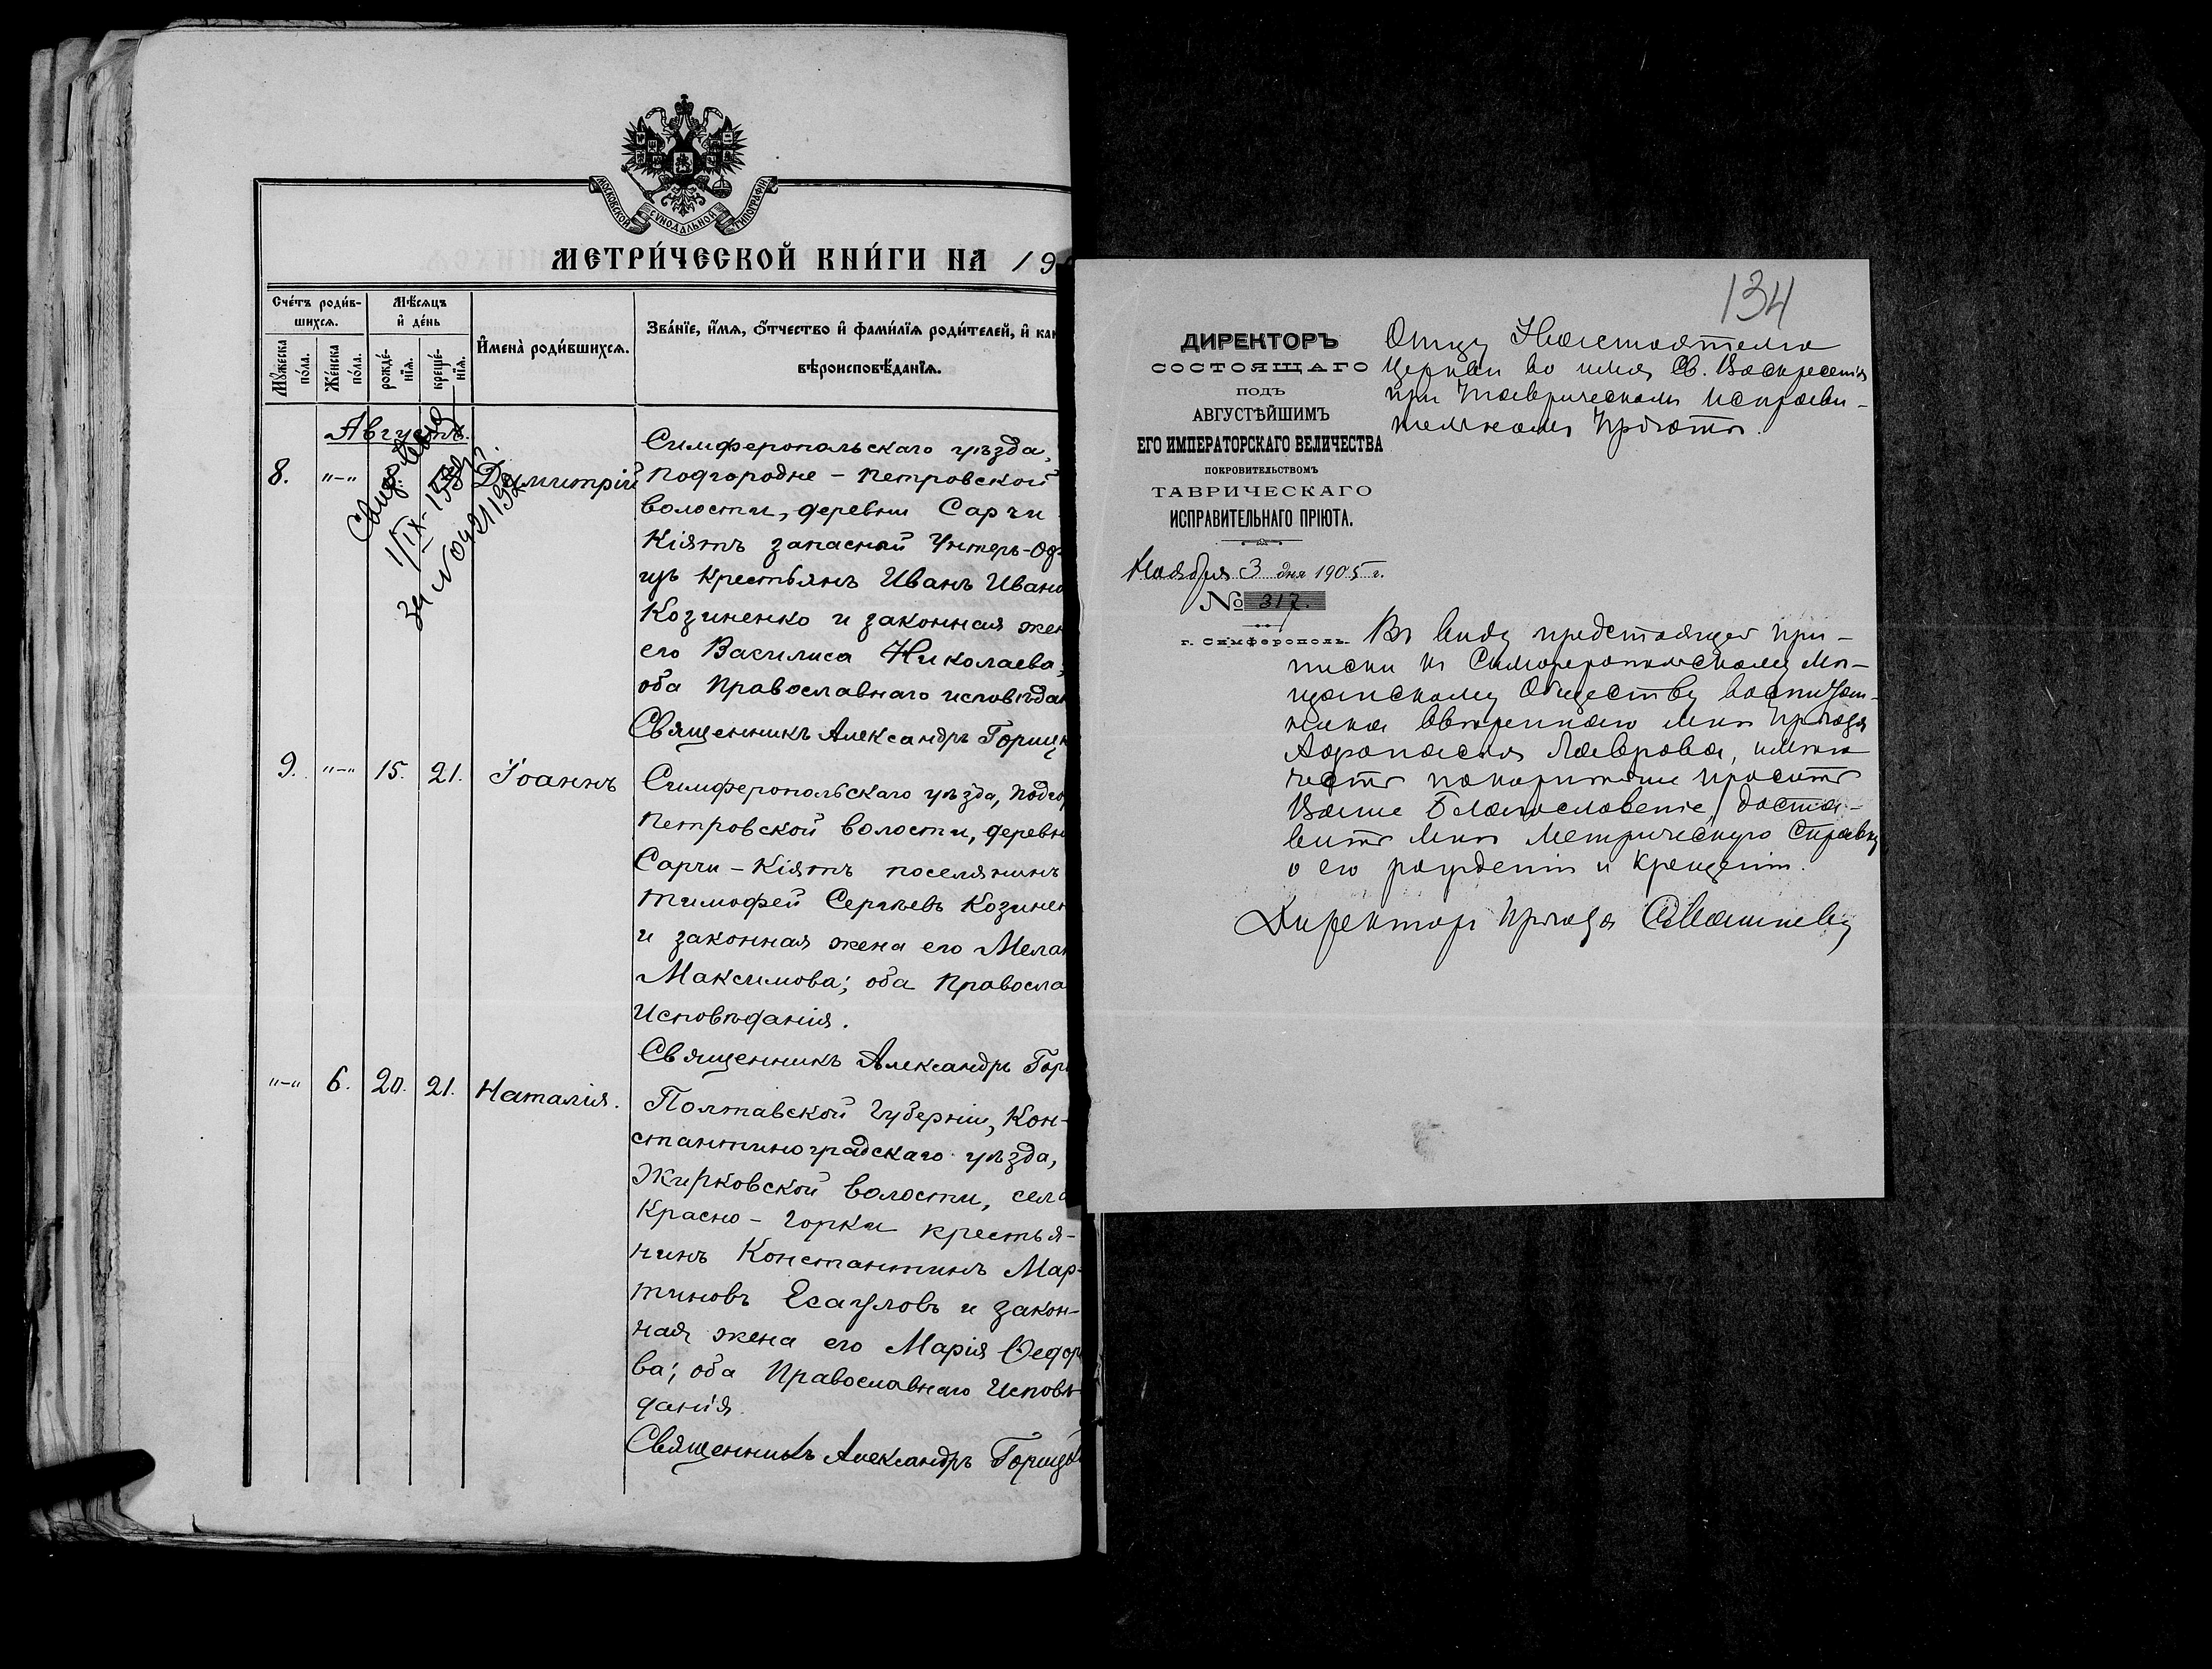 МОСКОВСКОЙ СѴНОДАЛЬНОЙ ТИПОГРАФІИ
МЕТРИ́ЧЕСКОЙ КНИ́ГИ НА 19
Сче́тъ роди́в-
шихсѧ.
Мѣ́сѧцъ
и҆ де́нь
Мꙋ́жеска
по́ла.
Же́нска
по́ла.
рожде́-
нїѧ.
креще́-
нїѧ.
И҆мена̀ роди́вшихсѧ.
Зва́нїе, и҆́мѧ, ѻ҆́тчество и҆ фами́лїѧ роди́телей, и҆ ка
вѣроисповѣ́данїѧ.
Августъ.
8. "-" Димитрій
Симферопольскаго уѣзда,
Подгородне - Петровской
волости, деревни Сарчи
Кіятъ запасный Унтеръ-Оф
изъ крестьянъ Иванъ Ивано
Козиненко и законная жен
его Василиса Николаева,
оба Православнаго исповѣдан
Священникъ Александръ Горищ
Свид.
1/IX-
за №
9. "-" 15. 21. Іоаннъ
Симферопольскаго уѣзда, Подго
Петровской волости, деревн
Сарчи - Кіятъ поселянинъ
Тимофей Сергѣевъ Козинен
и законная жена его Мелан
Максимова; оба Правосла
Исповѣданія.
Священникъ Александръ Гор
"-" 6. 20. 21. Наталія.
Полтавской Губерніи, Кон-
стантиноградскаго уѣзда,
Жирковской волости, села
Красно - Горки крестья-
нинъ Константинъ Мар-
тиновъ Есауловъ и закон-
ная жена его Марія Ѳедор
ва; оба Православнаго Исповѣ
данія.
Священникъ Александръ Горищ
134
ДИРЕКТОРЪ
СОСТОЯЩАГО
ПОДЪ
АВГУСТѢЙШИМЪ
ЕГО ИМПЕРАТОРСКАГО ВЕЛИЧЕСТВА
ПОКРОВИТЕЛЬСТВОМЪ
ТАВРИЧЕСКАГО
ИСПРАВИТЕЛЬНАГО ПРІЮТА.
Ноября 3 дня 1905 г.
№ 317.
г. Симферополь.
Отцу Настоятелю
Церкви во имя Св. Воскресенія
при Таврическомъ Исправи-
тельномъ Пріютѣ.
Въ виду предстоящей при-
писки къ Симферопольскому Мѣ-
щанскому Обществу воспитан-
ника ввѣреннаго мнѣ Пріюта
Афанасія Лаврова, имѣю
честь покорнѣйше просить
Ваше Благословеніе доста-
вить мнѣ метрическую справку
о его рожденіи и крещеніи.
Директоръ Пріюта